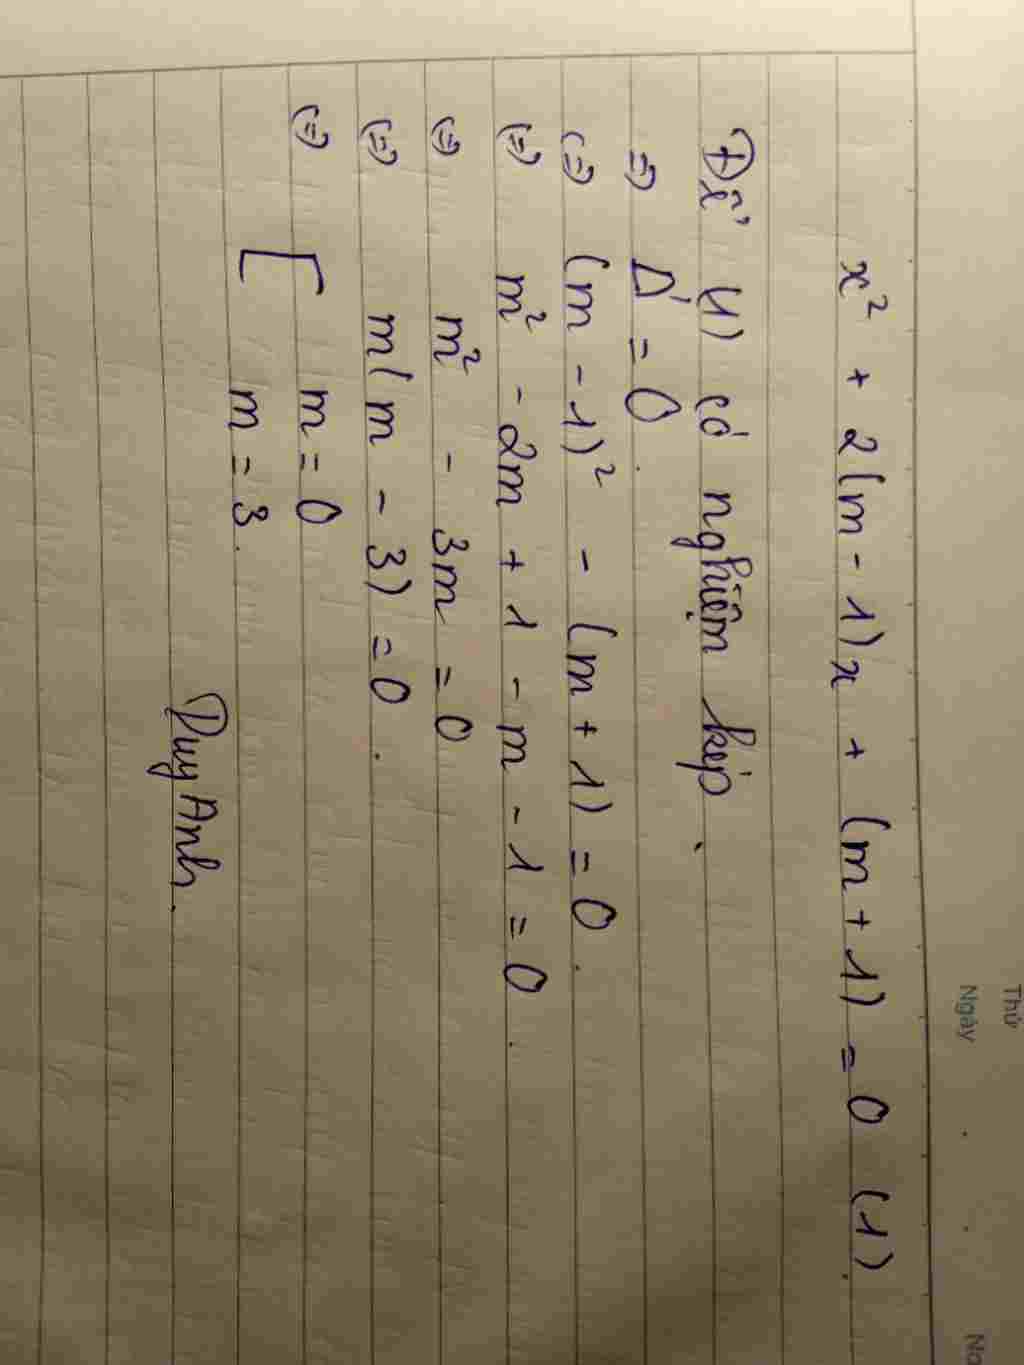 Thứ
Ngày
No
x² + 2(m - 1)x + (m + 1) = 0 (1).
Để (1) có nghiệm kép.
=> Δ' = 0.
(=) (m - 1)² - (m + 1) = 0.
(=) m² - 2m + 1 - m - 1 = 0.
(=) m² - 3m = 0
(=) m(m - 3) = 0.
(=) [ m = 0
m = 3.
Duy Anh.